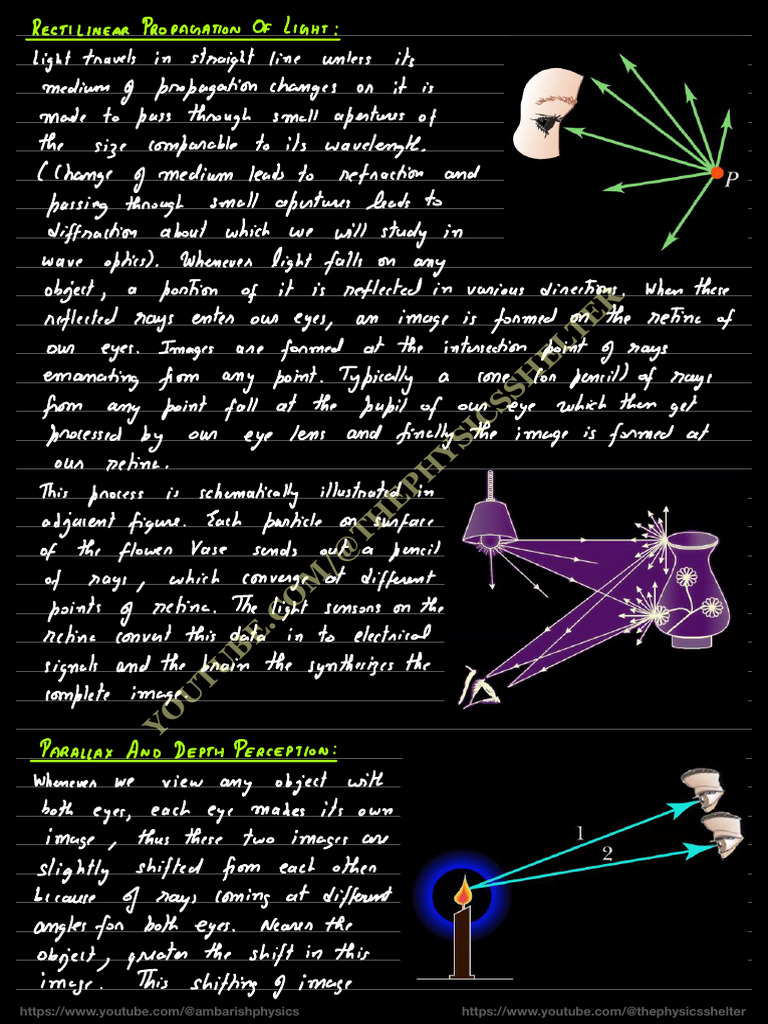 RECTILINEAR PROPAGATION OF LIGHT:
Light travels in straight line unless its
medium of propagation changes or it is
made to pass through small apertures of
the size comparable to its wavelength.
(Change of medium leads to refraction and
passing through small apertures leads to
diffraction about which we will study in
wave optics). Whenever light falls on any
object, a portion of it is reflected in various directions. When these
reflected rays enter our eyes, an image is formed on the retina of
our eyes. Images are formed at the intersection point of rays
emanating from any point. Typically a cone (or pencil) of rays
from any point fall at the pupil of our eye which then get
processed by our eye lens and finally the image is formed at
our retina.
P
This process is schematically illustrated in
adjacent figure. Each particle on surface
of the flower vase sends out a pencil
of rays, which converge at different
points of retina. The light sensors on the
retina convert this data in to electrical
signals and the brain the synthesizes the
complete image.
YOUTUBE.COM/@THEPHYSICSSHELTER
PARALLAX AND DEPTH PERCEPTION:
Whenever we view any object with
both eyes, each eye makes its own
image, thus these two images are
slightly shifted from each other
because of rays coming at different
angles for both eyes. Nearer the
object, greater the shift in this
image. This shifting of image
1
2
https://www.youtube.com/@ambarishphysics
https://www.youtube.com/@thephysicsshelter